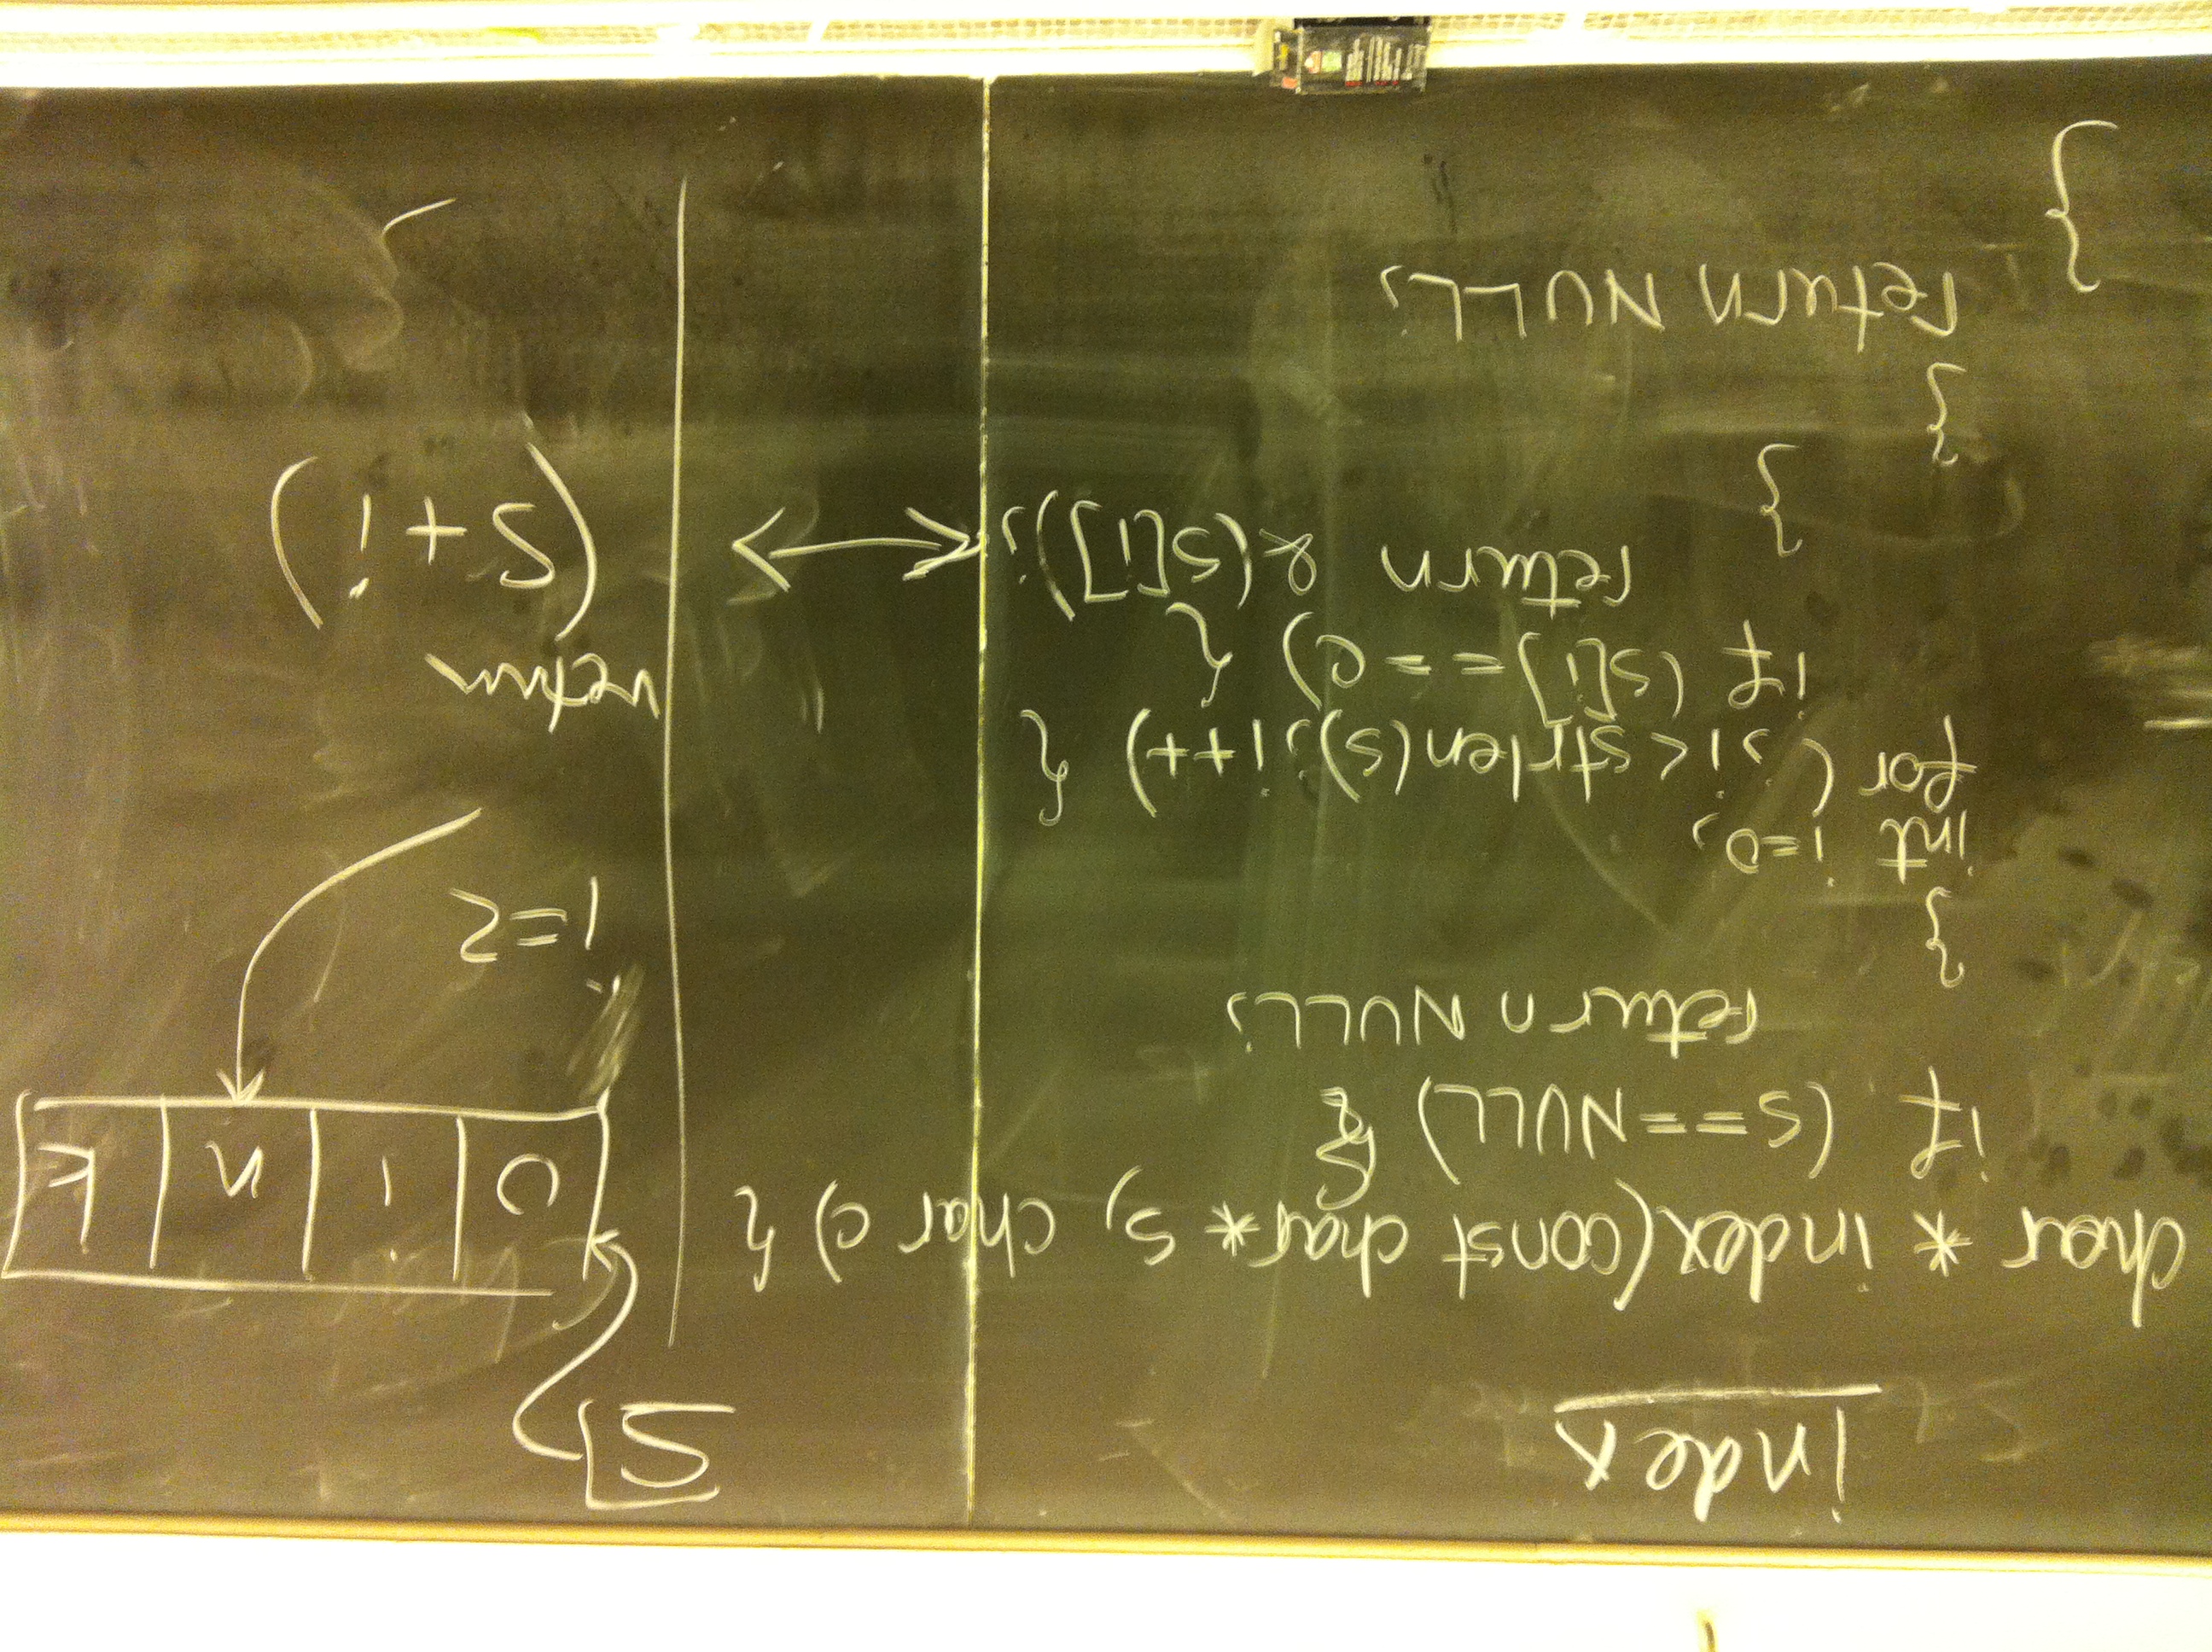 index
char * index(const char* s, char c) {
if (s==NULL) {
return NULL;
}
int i=0;
for ( ;i< strlen(s); i++) {
if (s[i]==c) {
return &(s[i]);
}
}
return NULL;
}
S
o i n k
i=2
return
(S+i)